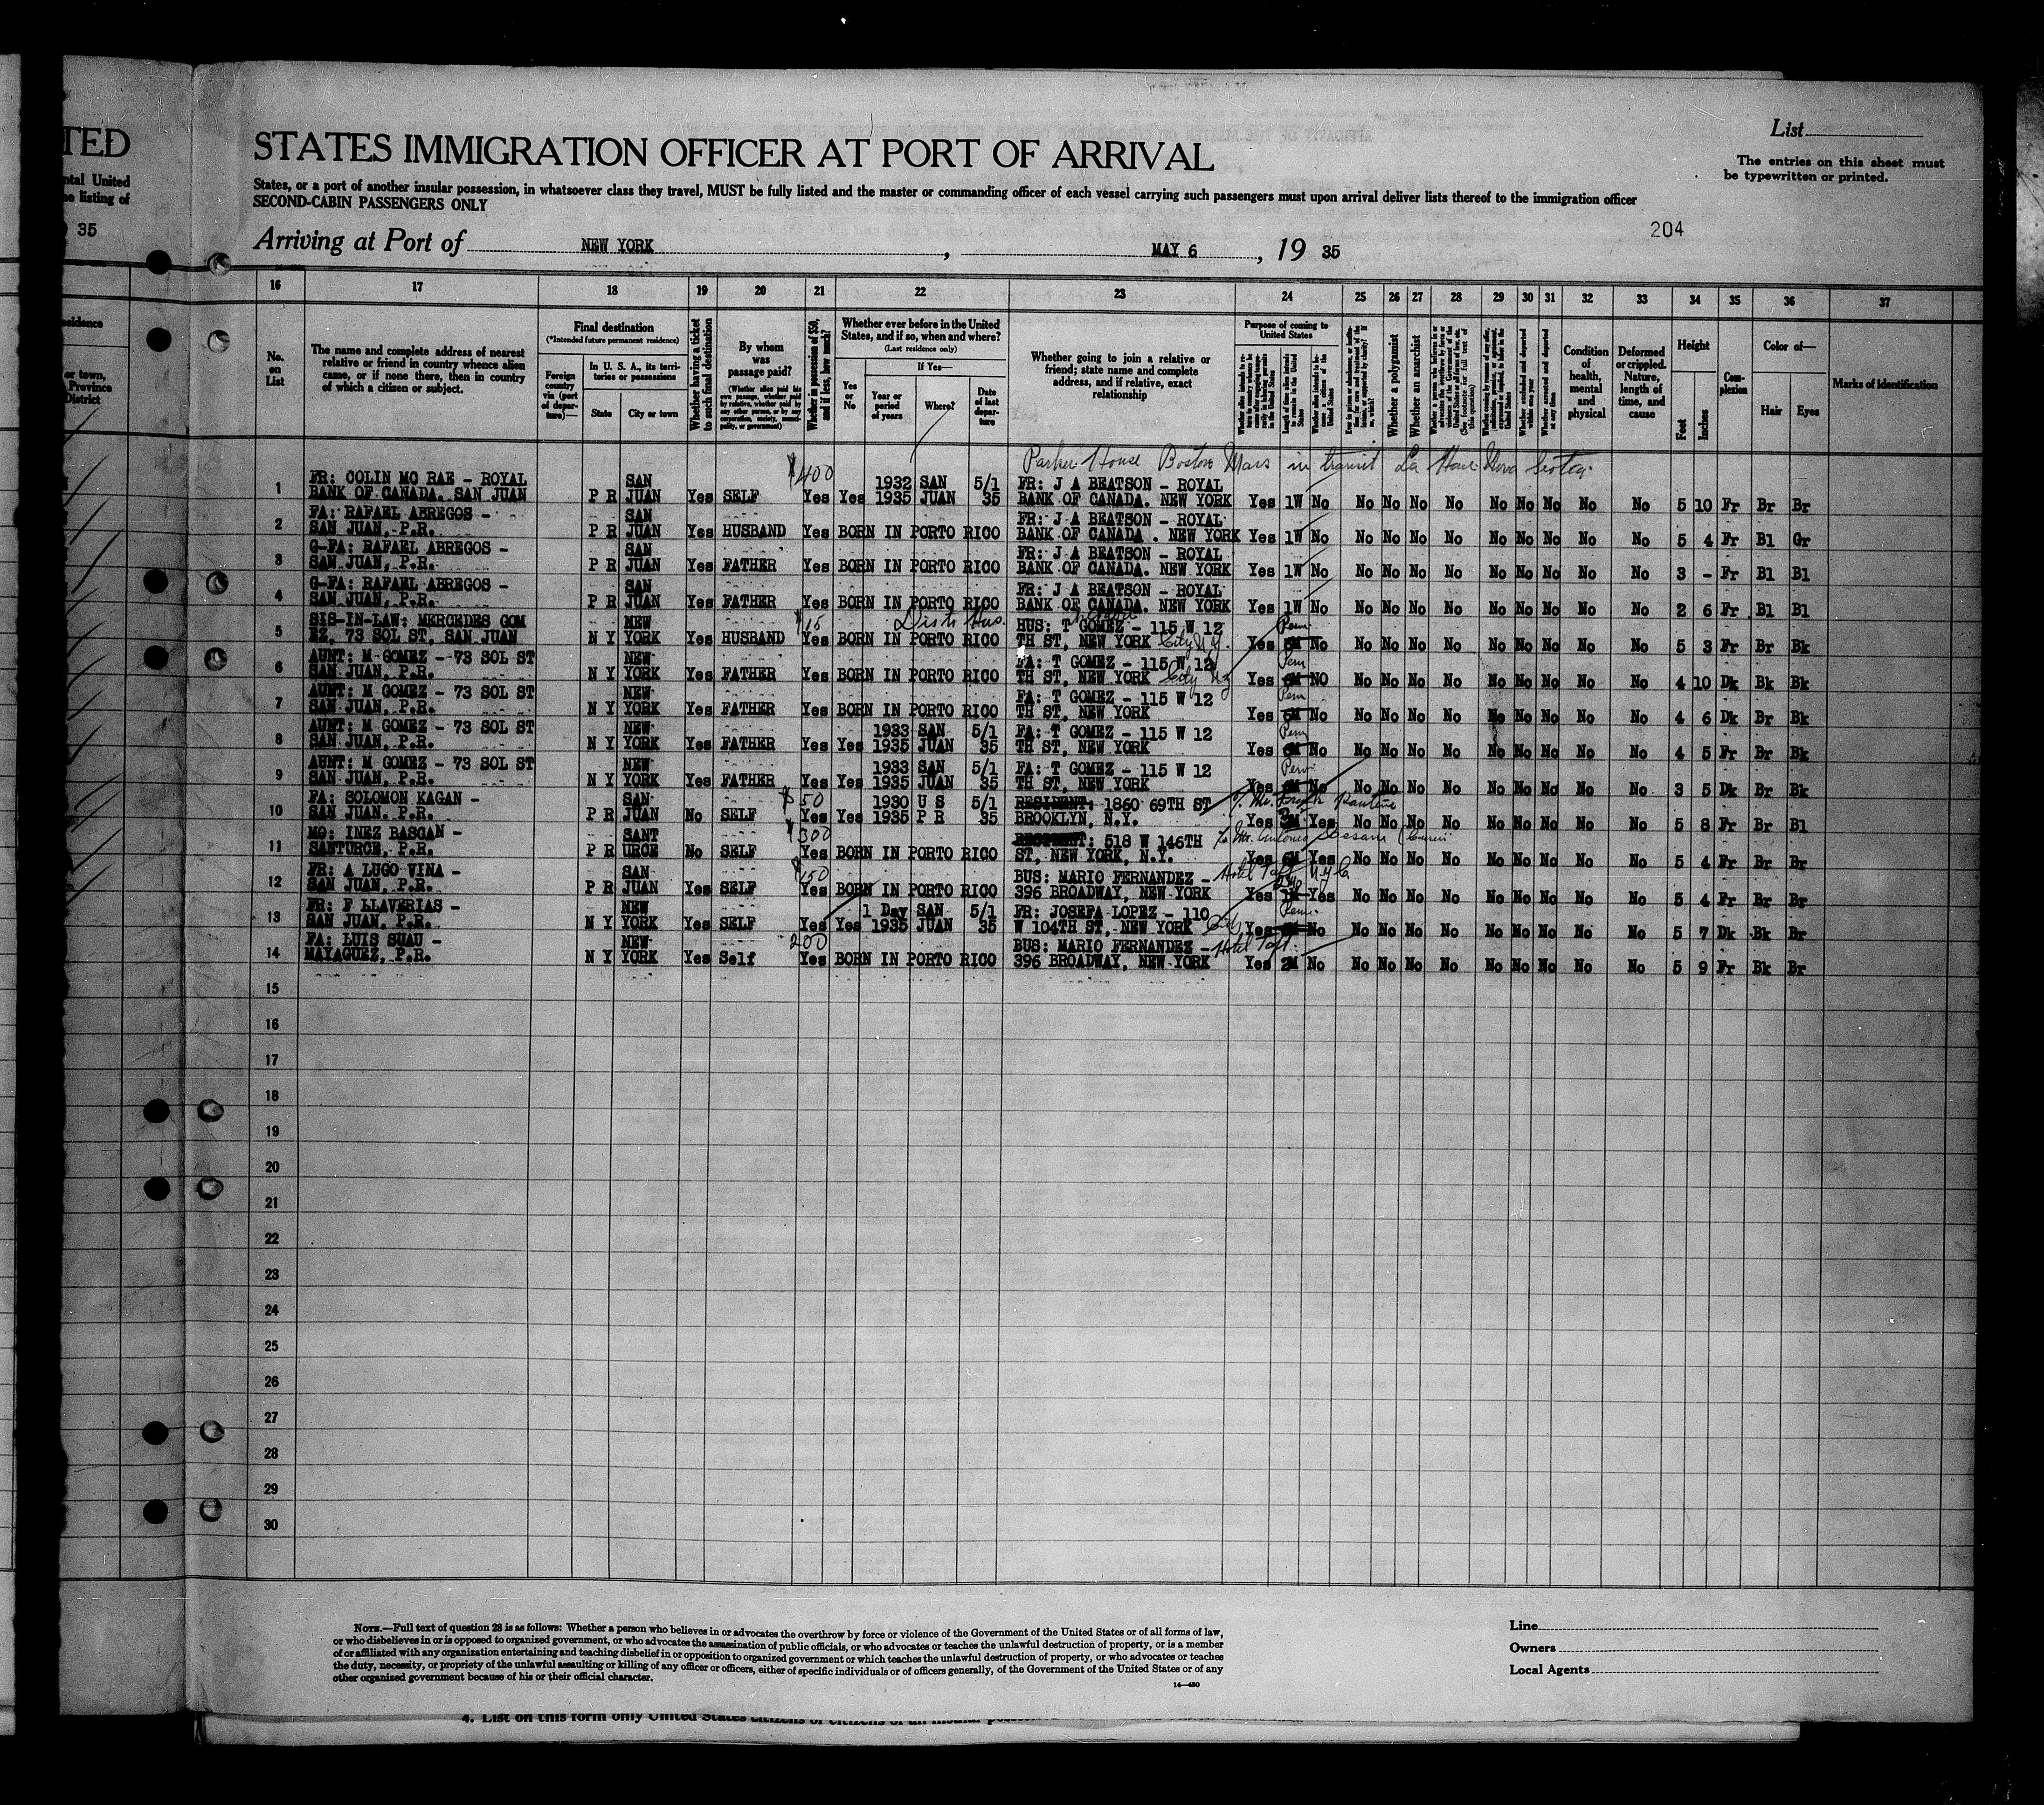 TED
ntal United
he listing of
35
esidence
or town,
Province
District
List
The entries on this sheet must
be typewritten or printed.
STATES IMMIGRATION OFFICER AT PORT OF ARRIVAL
States, or a port of another insular possession, in whatsoever class they travel, MUST be fully listed and the master or commanding officer of each vessel carrying such passengers must upon arrival deliver lists thereof to the immigration officer
SECOND-CABIN PASSENGERS ONLY
204
Arriving at Port of NEW YORK , MAY 6 , 19 35
16 17 18 19 20 21 22 23 24 25 26 27 28 29 30 31 32 33 34 35 36 37
No. on List
The name and complete address of nearest relative or friend in country whence alien came, or if none there, then in country of which a citizen or subject.
Final destination
(*Intended future permanent residence)
Foreign country via (port of departure)—
In U. S. A., its territories or possessions
State
City or town
Whether having a ticket to such final destination
By whom was passage paid?
(Whether alien paid his own passage, whether paid by relative, whether paid by any other person, or by any corporation, society, municipality, or government)
Whether in possession of $50, and if less, how much?
Whether ever before in the United States, and if so, when and where?
(Last residence only)
Yes or No
If Yes—
Year or period of years
Where?
Date of last departure
Whether going to join a relative or friend; state name and complete address, and if relative, exact relationship
Purpose of coming to United States
Whether a polygamist
Whether an anarchist
Condition of health, mental and physical
Deformed or crippled. Nature, length of time, and cause
Height
Feet
Inches
Complexion
Color of—
Hair
Eyes
Marks of identification
Parker House Boston Mass in transit La Have Nova Scotia
$400
1 FR: COLIN MC RAE - ROYAL BANK OF CANADA. SAN JUAN P R SAN JUAN Yes SELF Yes Yes 1932 1935 SAN JUAN 5/1 35 FR: J A BEATSON - ROYAL BANK OF CANADA. NEW YORK Yes 1W No No No No No No No No No No 5 10 Fr Br Br
2 FA: RAFAEL ABREGOS - SAN JUAN, P.R. P R SAN JUAN Yes HUSBAND Yes BORN IN PORTO RICO FR: J A BEATSON - ROYAL BANK OF CANADA . NEW YORK Yes 1W No No No No No No No No No No 5 4 Fr Bl Gr
3 G-FA: RAFAEL ABREGOS - SAN JUAN, P.R. P R SAN JUAN Yes FATHER Yes BORN IN PORTO RICO FR: J A BEATSON - ROYAL BANK OF CANADA. NEW YORK Yes 1W No No No No No No No No No No 3 - Fr Bl Bl
4 G-FA: RAFAEL ABREGOS - SAN JUAN, P.R. P R SAN JUAN Yes FATHER Yes BORN IN PORTO RICO FR: J A BEATSON - ROYAL BANK OF CANADA. NEW YORK Yes 1W No No No No No No No No No No 2 6 Fr Bl Bl
5 SIS-IN-LAW: MERCEDES GOM EZ, 73 SOL ST. SAN JUAN N Y NEW YORK Yes HUSBAND $15 Yes BORN IN PORTO RICO HUS: T GOMEZ - 115 W 12 TH ST, NEW YORK City N.Y. Yes Perm No No No No No No No No No No 5 3 Fr Br Bk
6 AUNT: M GOMEZ - 73 SOL ST SAN JUAN, P.R. N Y NEW YORK Yes FATHER Yes BORN IN PORTO RICO FA: T GOMEZ - 115 W 12 TH ST, NEW YORK City N.Y. Yes 6M Perm NO No No No No No No No No No 4 10 Dk Bk Bk
7 AUNT: M GOMEZ - 73 SOL ST SAN JUAN, P.R. N Y NEW YORK Yes FATHER Yes BORN IN PORTO RICO FA: T GOMEZ - 115 W 12 TH ST, NEW YORK Yes 6M Perm No No No No No No No No No No 4 6 Dk Br Bk
8 AUNT: M GOMEZ - 73 SOL ST SAN JUAN, P.R. N Y NEW YORK Yes FATHER Yes Yes 1933 1935 SAN JUAN 5/1 35 FA: T GOMEZ - 115 W 12 TH ST, NEW YORK Yes 6M Perm No No No No No No No No No No 4 5 Fr Br Bk
9 AUNT: M GOMEZ - 73 SOL ST SAN JUAN, P.R. N Y NEW YORK Yes FATHER Yes Yes 1933 1935 SAN JUAN 5/1 35 FA: T GOMEZ - 115 W 12 TH ST, NEW YORK Yes 6M Perm No No No No No No No No No No 3 5 Dk Br Bk
10 FA: SOLOMON KAGAN - SAN JUAN. P.R. P R SAN JUAN No SELF $50 Yes Yes 1930 1935 U S P R 5/1 35 RESIDENT: 1860 69TH ST BROOKLYN, N.Y. Yes Yes No No No No No No No No No 5 8 Fr Br Bl
11 MO: INEZ BASCAN - SANTURCE, P.R. P R SANT URCE No SELF $300 Yes BORN IN PORTO RICO 518 W 146TH ST, NEW YORK, N.Y. Yes 6M Yes No No No No No No No No No 5 4 Fr Br Br
12 FR: A LUGO VINA - SAN JUAN, P.R. P R SAN JUAN Yes SELF $150 Yes BORN IN PORTO RICO BUS: MARIO FERNANDEZ - 396 BROADWAY, NEW YORK Hotel Taft N.Y.C. Yes Yes No No No No No No No No No 5 4 Fr Br Br
13 FR: F LLAVERIAS - SAN JUAN, P.R. N Y NEW YORK Yes SELF Yes Yes 1 Day 1935 SAN JUAN 5/1 35 FR: JOSEFA LOPEZ - 110 W 104TH ST, NEW YORK City Yes Perm No No No No No No No No No No 5 7 Dk Bk Br
14 FA: LUIS SUAU - MAYAGUEZ, P.R. N Y NEW YORK Yes Self 200 Yes BORN IN PORTO RICO BUS: MARIO FERNANDEZ - 396 BROADWAY, NEW YORK Hotel Taft. Yes 2M No No No No No No No No No No 5 9 Fr Bk Br
15
16
17
18
19
20
21
22
23
24
25
26
27
28
29
30
NOTE.—Full text of question 28 is as follows: Whether a person who believes in or advocates the overthrow by force or violence of the Government of the United States or of all forms of law,
or who disbelieves in or is opposed to organized government, or who advocates the assassination of public officials, or who advocates or teaches the unlawful destruction of property, or is a member
of or affiliated with any organization entertaining and teaching disbelief in or opposition to organized government or which teaches the unlawful destruction of property, or who advocates or teaches
the duty, necessity, or propriety of the unlawful assaulting or killing of any officer or officers, either of specific individuals or of officers generally, of the Government of the United States or of any
other organized government because of his or their official character.
14—430
Line
Owners
Local Agents
4. List on this form only United States citizens or citizens of an insular